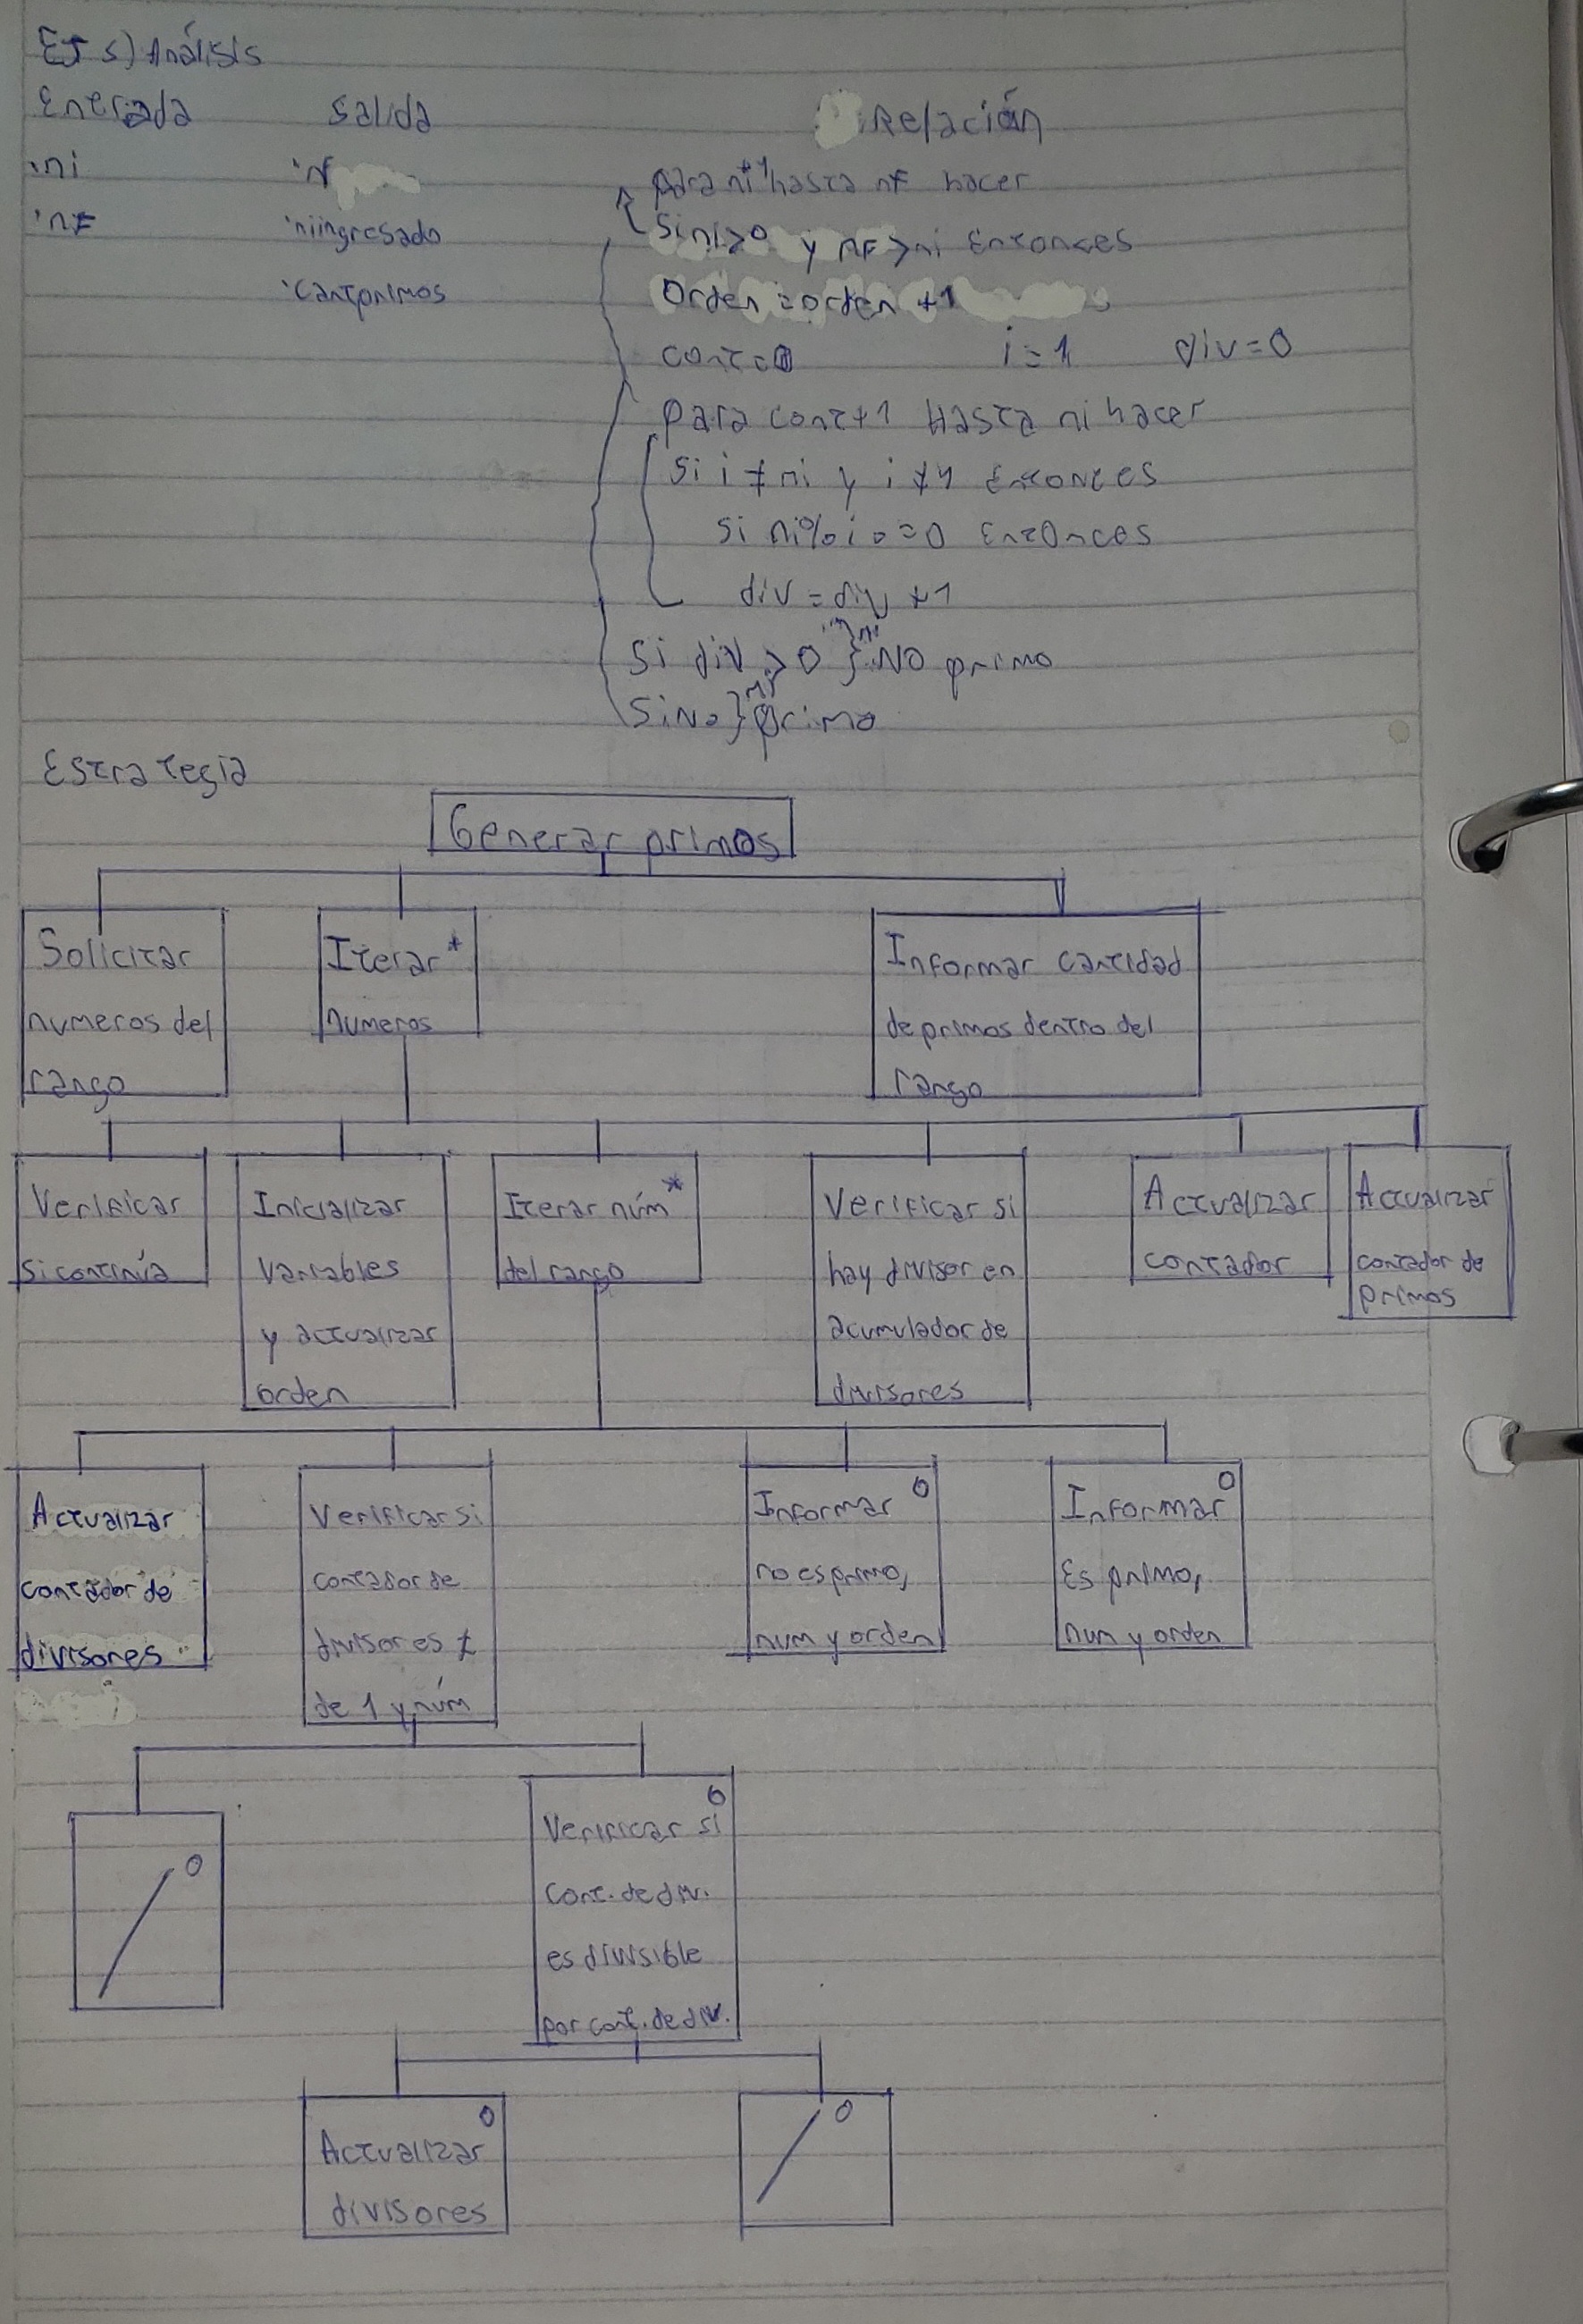 EJ 5) Análisis
Entrada Salida Relación
·ni ·nf para ni+1 hasta nf hacer
·nf ·niingresado Si ni>0 y nf>ni Entonces
·cantprimos Orden = orden +1
cont=0 i=1 div=0
para cont+1 Hasta ni hacer
Si i≠ni y i≠1 Entonces
Si ni%i==0 Entonces
div = div +1
Si div >0 } "ni" NO primo
SiNo } ni primo
Estrategia
Generar primos
Solicitar numeros del rango
Iterar * numeros
Informar cantidad de primos dentro del rango
Verificar si continúa
Inicializar variables y actualizar orden
Iterar núm * del rango
Verificar si hay divisor en acumulador de divisores
Actualizar contador
Actualizar contador de primos
Actualizar contador de divisores
Verificar si contador de divisores ≠ de 1 y núm
Informar o no es primo, num y orden
Informar o Es primo, num y orden
o
o Verificar si cont. de div. es divisible por cont. de div.
o Actualizar divisores
o